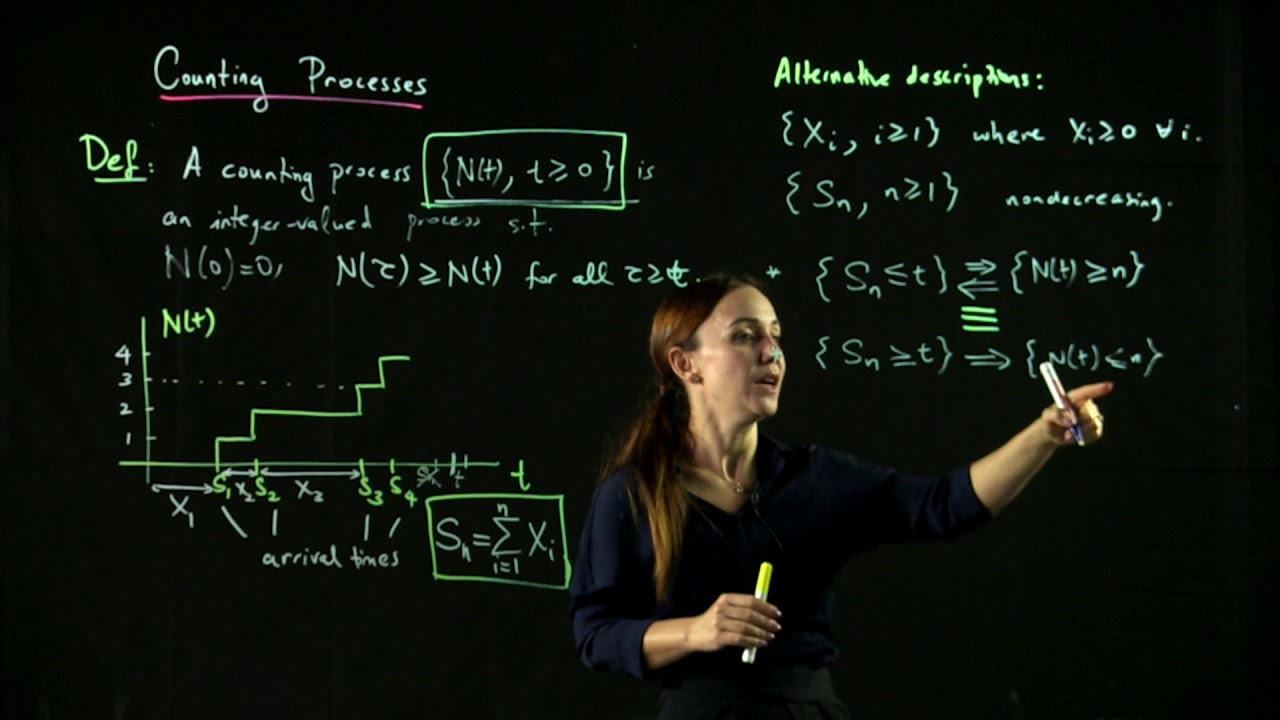 Counting Processes
Def: A counting process {N(t), t ≥ 0} is
an integer-valued process s.t.
N(0)=0, N(τ) ≥ N(t) for all τ ≥ t.
N(t)
4
3
2
1
S₁ S₂ S₃ S₄ t t
X₁ X₂ X₃
arrival times
Sₙ = ∑ⁿᵢ₌₁ Xᵢ
Alternative descriptions:
{Xᵢ, i≥1} where Xᵢ≥0 ∀i.
{Sₙ, n≥1} nondecreasing.
* {Sₙ ≤ t} ⇒ ⇐ {N(t) ≥ n}
≡
{Sₙ ≥ t} ⇒ {N(t) < n}